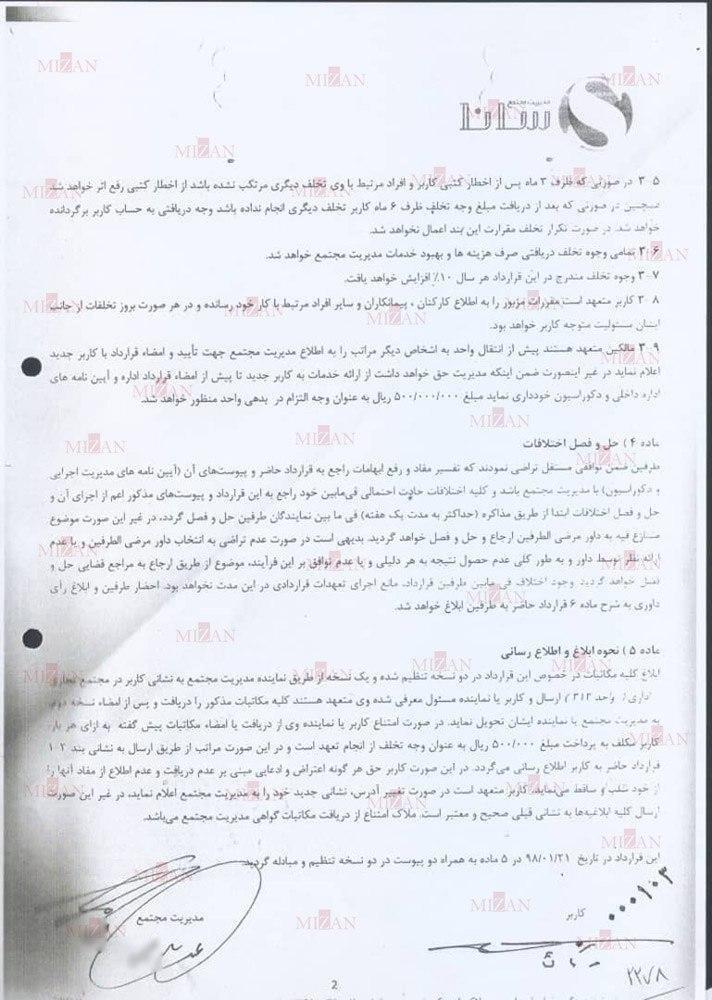 مدیریت مجتمع
سمانا
۳-۵ در صورتی که ظرف ۳ ماه پس از اخطار کتبی کاربر و افراد مرتبط با وی تخلف دیگری مرتکب نشده باشد از اخطار کتبی رفع اثر خواهد شد.
همچنین در صورتی که بعد از دریافت مبلغ وجه تخلف ظرف ۶ ماه کاربر تخلف دیگری انجام نداده باشد وجه دریافتی به حساب کاربر برگردانده
خواهد شد. در صورت تکرار تخلف مقررات این بند اعمال نخواهد شد.
۳-۶ تمامی وجوه تخلف دریافتی صرف هزینه ها و بهبود خدمات مدیریت مجتمع خواهد شد.
۳-۷ وجوه تخلف مندرج در این قرارداد هر سال ۱۰٪ افزایش خواهد یافت.
۳-۸ کاربر متعهد است مقررات مزبور را به اطلاع کارکنان ، پیمانکاران و سایر افراد مرتبط با کار خود رسانده و در هر صورت بروز تخلفات از جانب
ایشان مسئولیت متوجه کاربر خواهد بود.
۳-۹ مالکین متعهد هستند پیش از انتقال واحد به اشخاص دیگر مراتب را به اطلاع مدیریت مجتمع جهت تأیید و امضاء قرارداد با کاربر جدید
اعلام نماید در غیر اینصورت ضمن اینکه مدیریت حق خواهد داشت از ارائه خدمات به کاربر جدید تا پیش از امضاء قرارداد اداره و آیین نامه های
اداره داخلی و دکوراسیون خودداری نماید مبلغ ۵۰۰/۰۰۰/۰۰۰ ریال به عنوان وجه التزام در بدهی واحد منظور خواهد شد.
ماده ۴ ) حل و فصل اختلافات
طرفین ضمن توافقی مستقل تراضی نمودند که تفسیر مفاد و رفع ابهامات راجع به قرارداد حاضر و پیوستهای آن (آیین نامه های مدیریت اجرایی
و دکوراسیون) با مدیریت مجتمع باشد و کلیه اختلافات حادث احتمالی فی‌مابین خود راجع به این قرارداد و پیوست‌های مذکور اعم از اجرای آن و
حل و فصل اختلافات ابتدا از طریق مذاکره (حداکثر به مدت یک هفته) فی ما بین نمایندگان طرفین حل و فصل گردد، در غیر این صورت موضوع
متنازع فیه به داور مرضی الطرفین ارجاع و حل و فصل خواهد گردید. بدیهی است در صورت عدم تراضی به انتخاب داور مرضی الطرفین و یا عدم
ارائه نظر توسط داور و به طور کلی عدم حصول نتیجه به هر دلیلی و یا عدم توافق بر این فرآیند، موضوع از طریق ارجاع به مراجع قضایی حل و
فصل خواهد گردید. وجود اختلاف فی مابین طرفین قرارداد، مانع اجرای تعهدات قراردادی در این مدت نخواهد بود. احضار طرفین و ابلاغ رأی
داوری به شرح ماده ۶ قرارداد حاضر به طرفین ابلاغ خواهد شد.
ماده ۵ ) نحوه ابلاغ و اطلاع رسانی
ابلاغ کلیه مکاتبات در خصوص این قرارداد در دو نسخه تنظیم شده و یک نسخه از طریق نماینده مدیریت مجتمع به نشانی کاربر در مجتمع تجاری
اداری( واحد ۳۱۲ ) ارسال و کاربر یا نماینده مسئول معرفی شده وی متعهد هستند کلیه مکاتبات مذکور را دریافت و پس از امضاء نسخه دوم
به مدیریت مجتمع یا نماینده ایشان تحویل نماید. در صورت امتناع کاربر یا نماینده وی از دریافت یا امضاء مکاتبات پیش گفته به ازای هر بار
کاربر مکلف به پرداخت مبلغ ۵۰۰/۰۰۰ ریال به عنوان وجه تخلف از انجام تعهد است و در این صورت مراتب از طریق ارسال به نشانی بند ۲-۱
قرارداد حاضر به کاربر اطلاع رسانی می‌گردد. در این صورت کاربر حق هر گونه اعتراض و ادعایی مبنی بر عدم دریافت و عدم اطلاع از مفاد آنها را
از خود سلب و ساقط می‌نماید. کاربر متعهد است در صورت تغییر آدرس، نشانی جدید خود را به مدیریت مجتمع اعلام نماید، در غیر این صورت
ارسال کلیه ابلاغیه‌ها به نشانی قبلی صحیح و معتبر است. ملاک امتناع از دریافت مکاتبات گواهی مدیریت مجتمع می‌باشد.
این قرارداد در تاریخ ۹۸/۰۱/۲۱ در ۵ ماده به همراه دو پیوست در دو نسخه تنظیم و مبادله گردید.
کاربر
مدیریت مجتمع
۰۰۰۱۰۳
۲۲۰۸
2
MIZAN